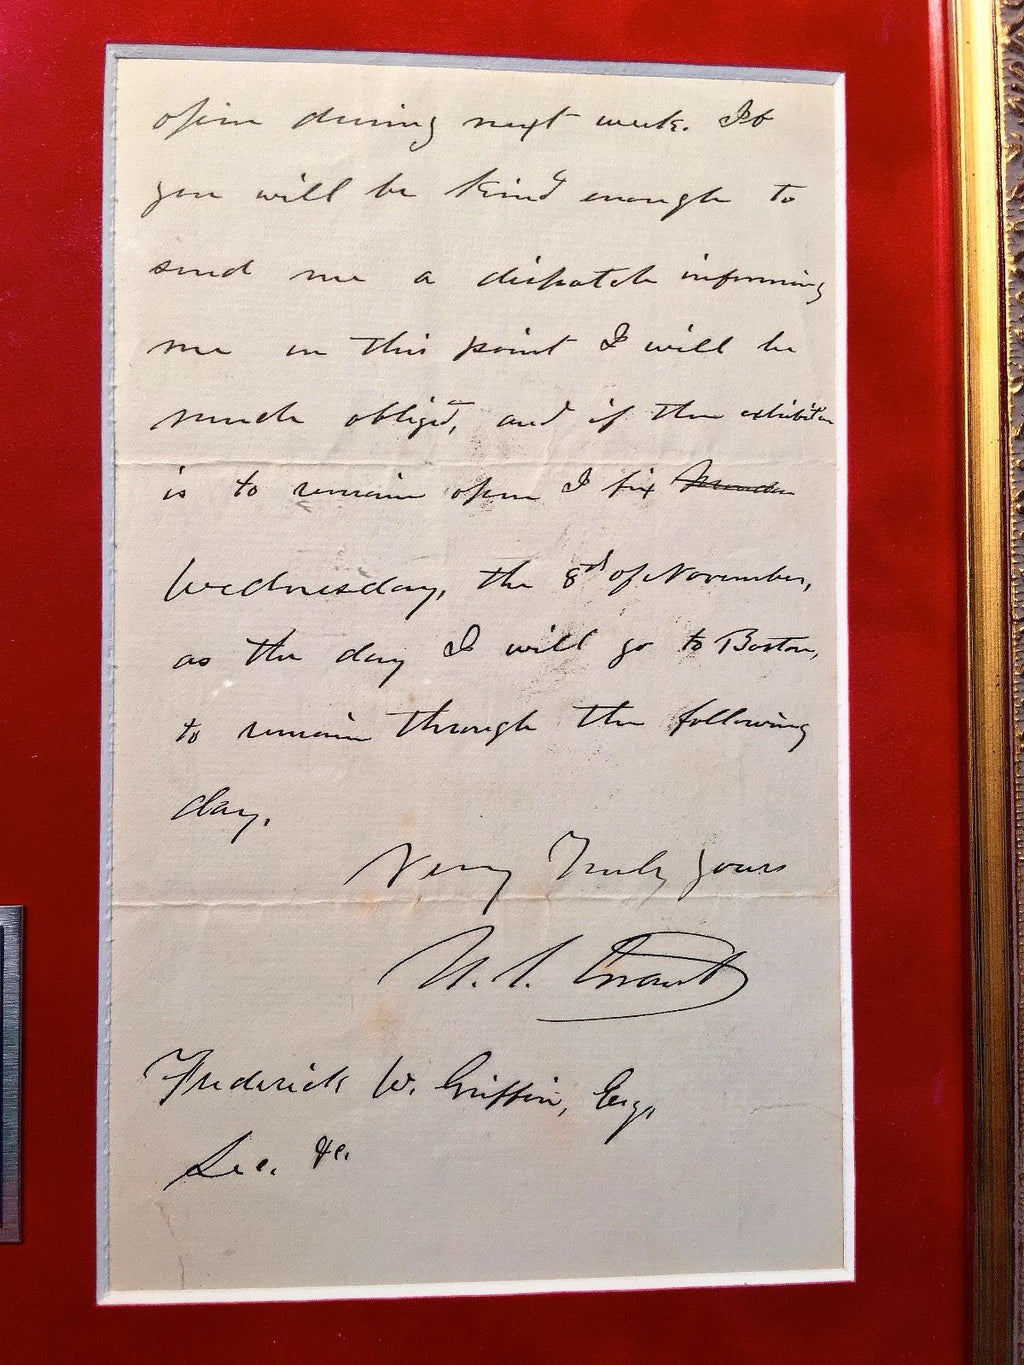 open during next week. If
you will be kind enough to
send me a dispatch informing
me on this point I will be
much obliged, and if the exhibition
is to remain open I fix
Wednesday, the 8th of November,
as the day I will go to Boston,
to remain through the following
day.
Very Truly yours
U. S. Grant
Frederick W. Griffin, Esq,
Sec. &c.